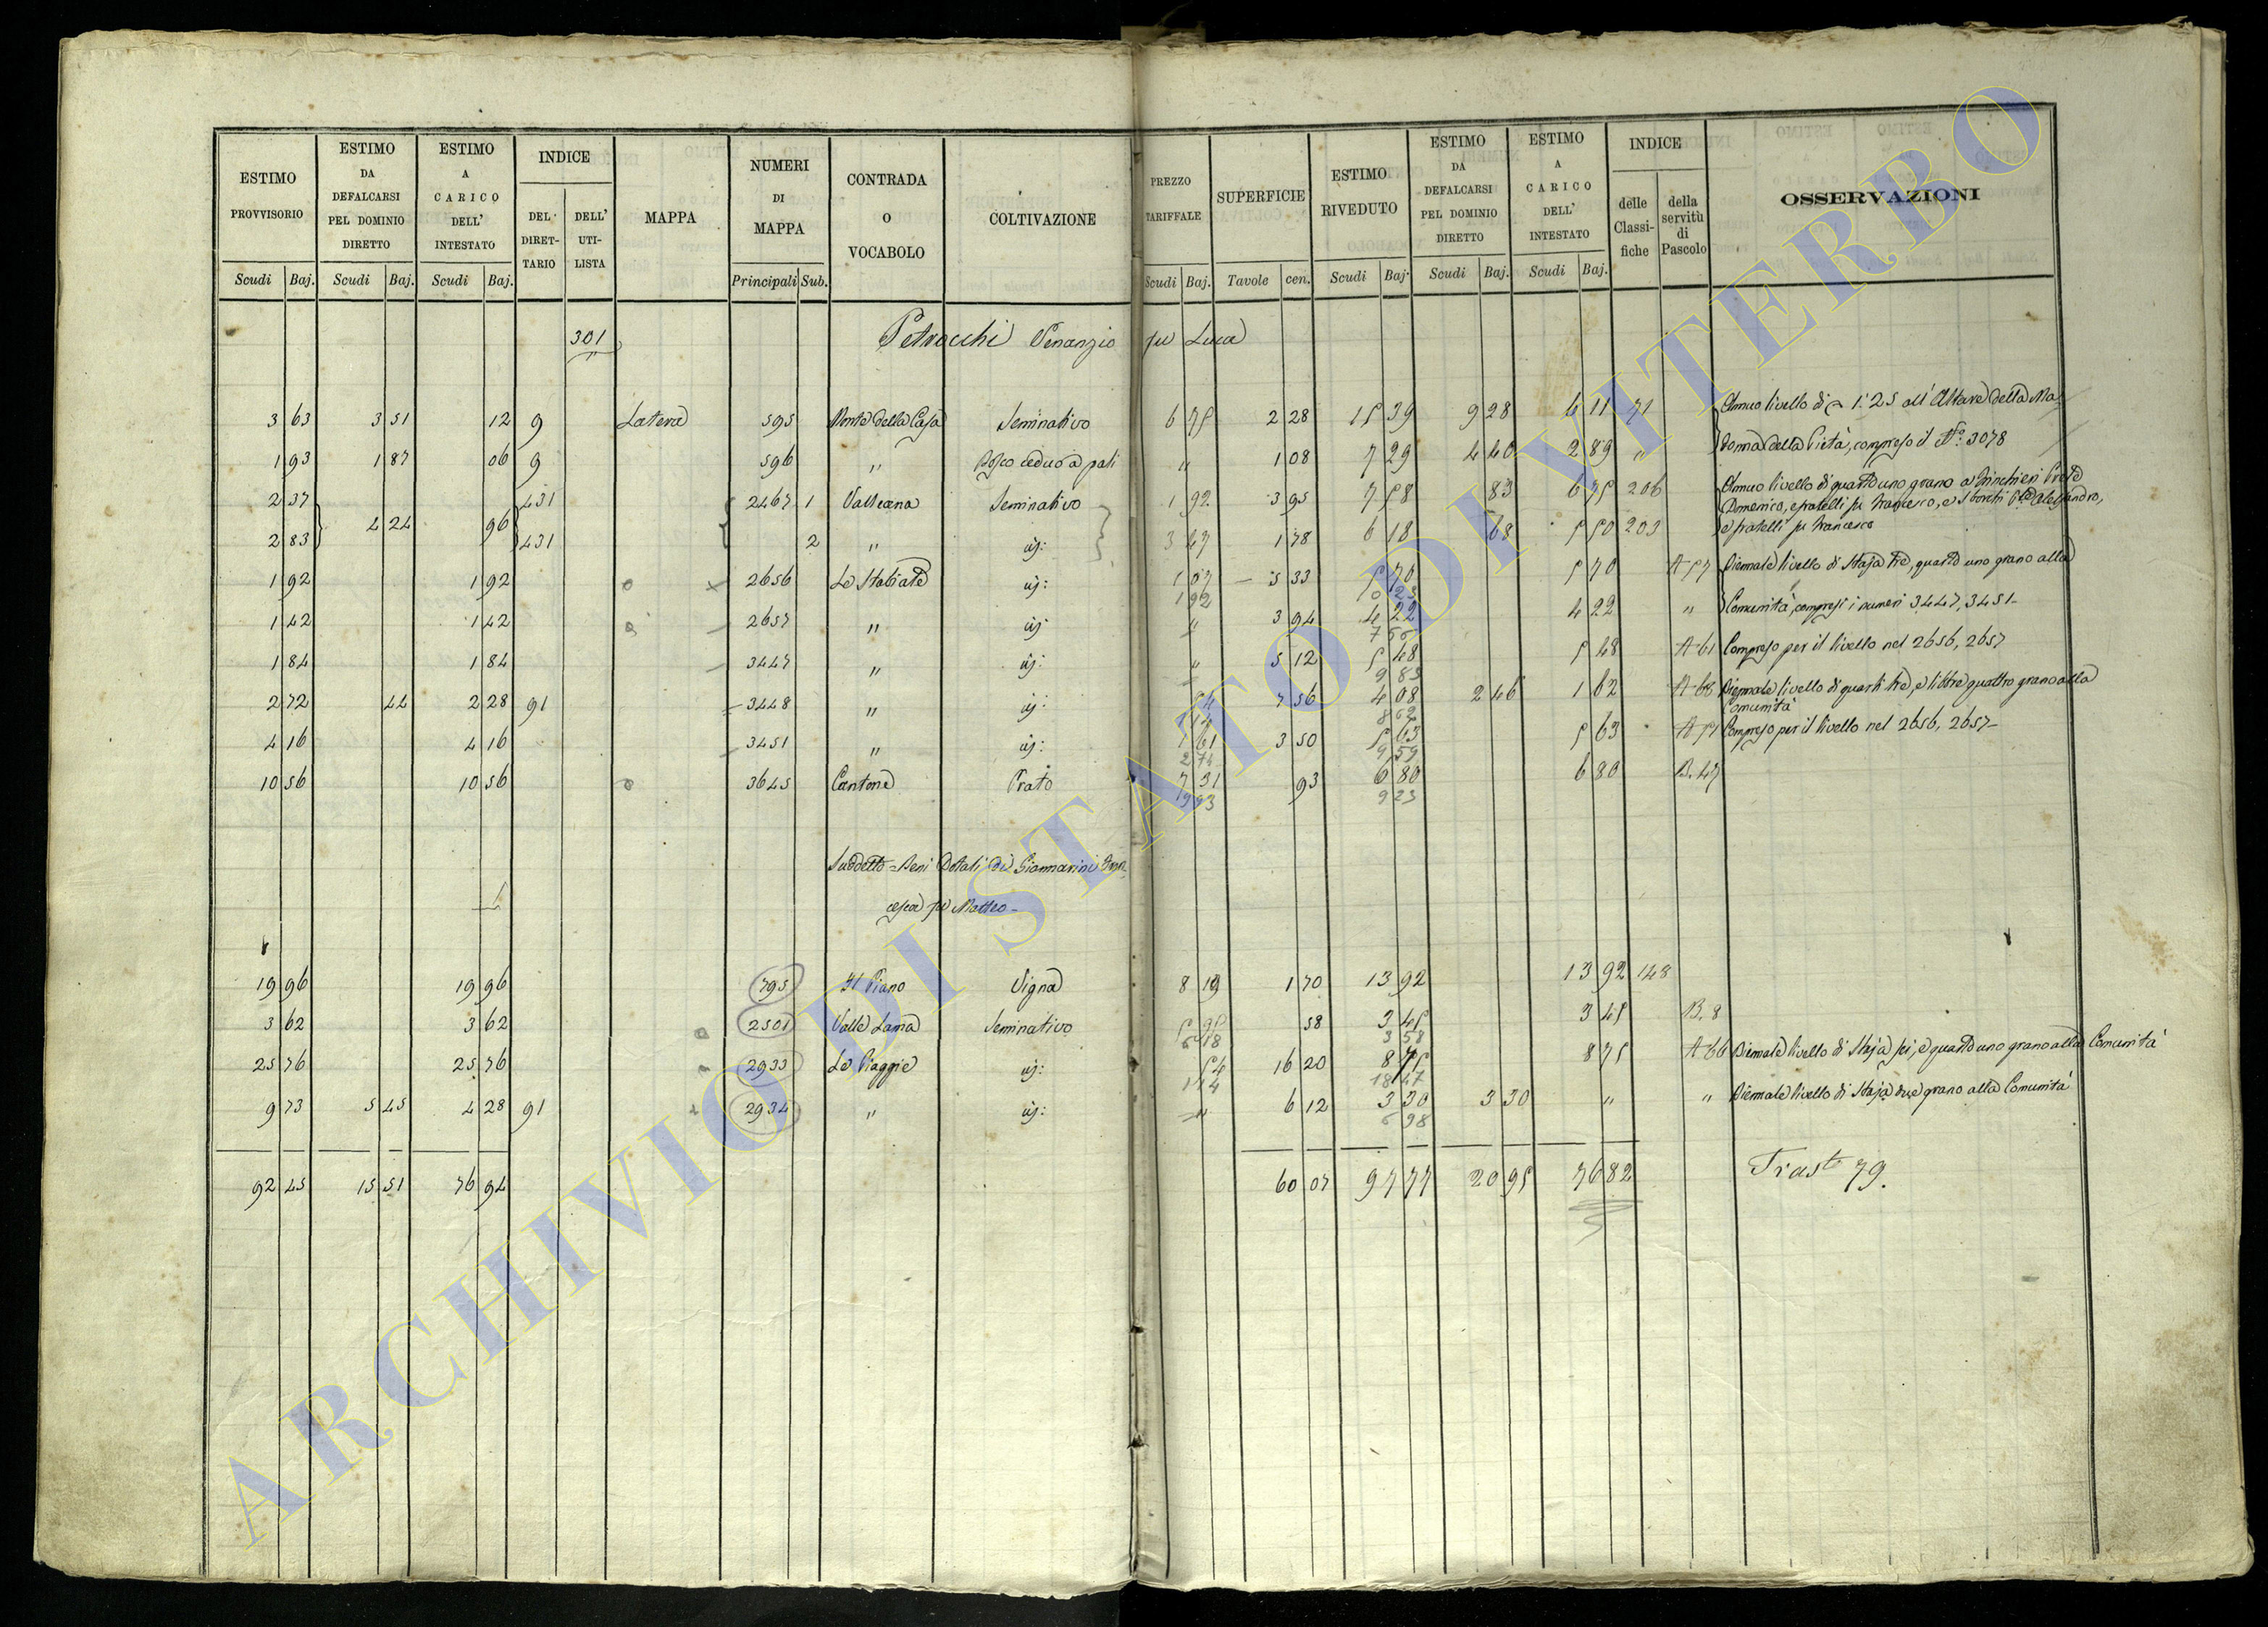 ESTIMO PROVVISORIO | ESTIMO DA DEFALCARSI PEL DOMINIO DIRETTO | ESTIMO A CARICO DELL' INTESTATO | INDICE | MAPPA | NUMERI DI MAPPA | CONTRADA O VOCABOLO | COLTIVAZIONE | PREZZO TARIFFALE | SUPERFICIE | ESTIMO RIVEDUTO | ESTIMO DA DEFALCARSI PEL DOMINIO DIRETTO | ESTIMO A CARICO DELL' INTESTATO | INDICE | OSSERVAZIONI
DEL DIRETTARIO | DELL' UTILISTA | delle Classifiche | della servitù di Pascolo
Scudi | Baj. | Scudi | Baj. | Scudi | Baj. | Principali | Sub. | Scudi | Baj. | Tavole | cen. | Scudi | Baj. | Scudi | Baj. | Scudi | Baj.
301 Petrocchi Venanzio fu Luca
3 63 | 3 51 | 12 | 9 | Latera | 595 | Monte della Casa | Seminativo | 6 75 | 2 28 | 15 39 | 9 28 | 6 11 | 71 | Annuo livello di 1:25 all' Altare della Ma
1 93 | 1 87 | 06 | 9 | 596 | " | Bosco ceduo a pali | " | 1 08 | 7 29 | 4 40 | 2 89 | " | donna della Pietà, compreso il N.° 3078
2 37 | 4 24 | 96 | 431 | 2467 | 1 | Vallicana | Seminativo | 1 92 | 3 95 | 7 58 | 83 | 6 75 | 206 | Annuo livello di quarto uno grano a
Domenico, e fratelli fu Francesco, e Alessandro,
2 83 | 431 | 2 | " | 3 47 | 1 78 | 6 18 | 68 | 5 50 | 203 | e fratelli fu Francesco
1 92 | 1 92 | 2656 | Le Stabiate | 1 07 | 5 33 | 5 70 | 5 70 | A 57 | Biennale livello di Staja tre, quarto uno grano alla
1 92
1 42 | 1 42 | 2657 | " | " | 3 94 | 4 22 | 4 22 | " | Comunità, compresi i numeri 3447, 3451
1 84 | 1 84 | 3447 | " | " | 5 12 | 5 48 | 5 48 | A 61 | Compreso per il livello nel 2656, 2657
2 72 | 44 | 2 28 | 91 | 3448 | " | 54 | 7 56 | 4 08 | 2 46 | 1 62 | A 68 | Biennale livello di quarti tre, e libbre quattro grano alla
Comunità
4 16 | 4 16 | 3451 | " | 1 61 | 3 50 | 5 63 | 5 63 | A 57 | Compreso per il livello nel 2656, 2657
2 74 | 9 59
10 56 | 10 56 | 3645 | Cantone | Prato | 7 31 | 93 | 6 80 | 6 80 | B. 47
9 93 | 9 23
Suddetto = Beni Dotali di Giannarini Fran
cesca fu Matteo
19 96 | 19 96 | 795 | Il Piano | Vigna | 8 19 | 1 70 | 13 92 | 13 92 | 148
3 62 | 3 62 | 2501 | Valle Lama | Seminativo | 5 95 | 58 | 3 45 | 3 45 | B. 8
6 18 | 3 58
25 76 | 25 76 | 2933 | Le Piaggie | 54 | 16 20 | 8 75 | 8 75 | A 66 | Biennale livello di Staja sei, e quarto uno grano alla Comunità
1 14 | 18 47
9 73 | 5 45 | 4 28 | 91 | 2934 | " | " | 6 12 | 3 30 | 3 30 | " | " | Biennale livello di Staja due grano alla Comunità
6 98
92 45 | 15 51 | 76 94 | 60 07 | 97 77 | 20 95 | 76 82 | Trasto 79.
ARCHIVIO DI STATO DI VITERBO